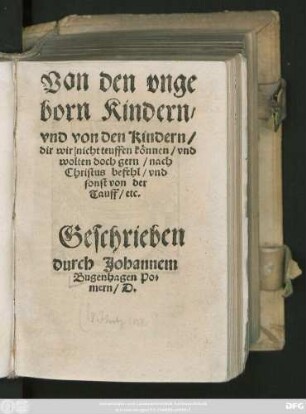 Von den vnge
born Kindern/
vnd von den Kindern/
die wir nicht teuffen können/ vnd
wolten doch gern/ nach
Christus befehl/ vnd
sonst von der
Tauff/ etc.
Geschrieben
durch Johannem
Bugenhagen Po-
mern/ D.